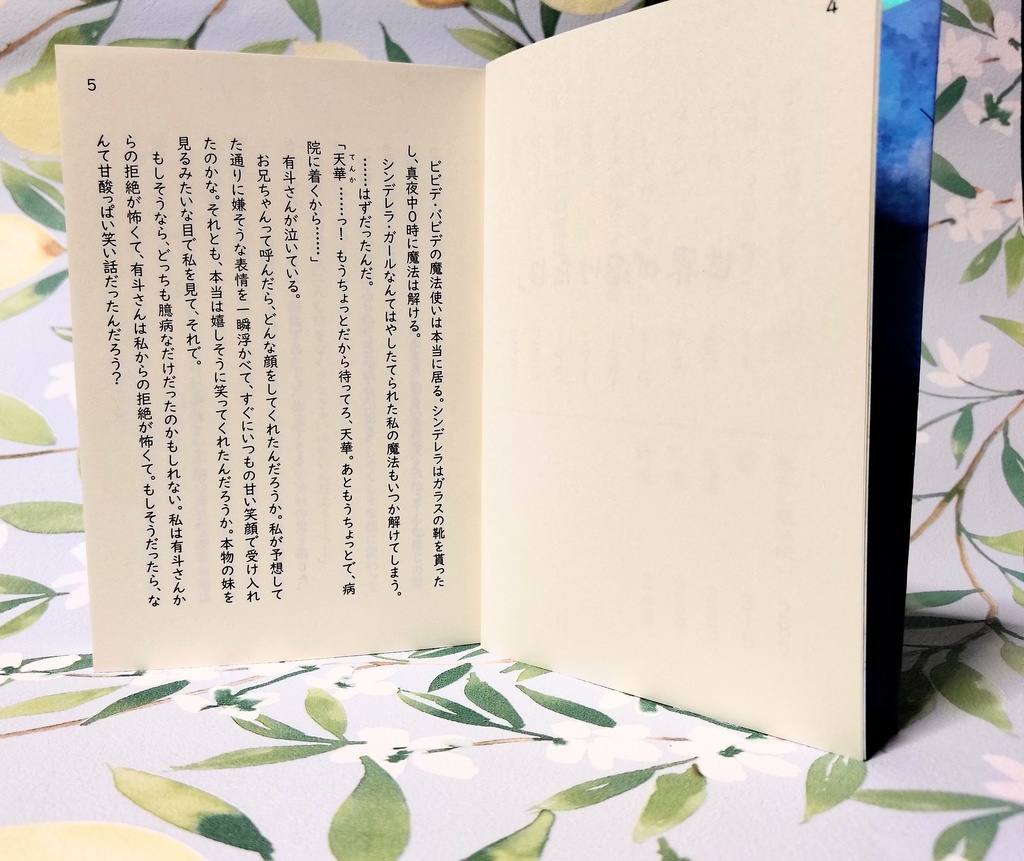 4
5
ビビデ・バビデの魔法使いは本当に居る。シンデレラはガラスの靴を貰った
し、真夜中0時に魔法は解ける。
シンデレラ・ガールなんてはやしたてられた私の魔法もいつか解けてしまう。
……はずだったんだ。
「天華……っ! もうちょっとだから待ってろ、天華。あともうちょっとで、病
てんか
院に着くから……」
有斗さんが泣いている。
お兄ちゃんって呼んだら、どんな顔をしてくれたんだろうか。私が予想して
た通りに嫌そうな表情を一瞬浮かべて、すぐにいつもの甘い笑顔で受け入れ
たのかな。それとも、本当は嬉しそうに笑ってくれたんだろうか。本物の妹を
見るみたいな目で私を見て、それで。
もしそうなら、どっちも臆病なだけだったのかもしれない。私は有斗さんか
らの拒絶が怖くて、有斗さんは私からの拒絶が怖くて。もしそうだったら、な
んて甘酸っぱい笑い話だったんだろう?